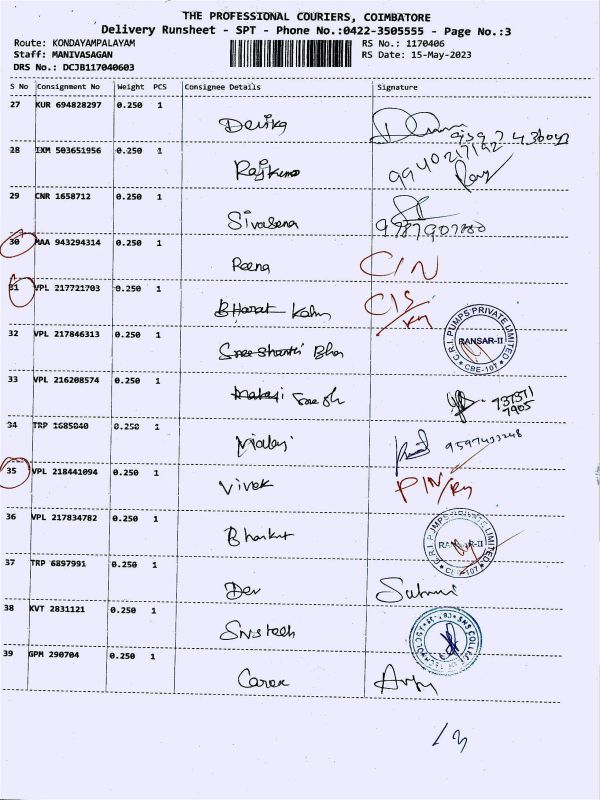 THE PROFESSIONAL COURIERS, COIMBATORE
Delivery Runsheet - SPT - Phone No.:0422-3505555 - Page No.:3
Route: KONDAYAMPALAYAM RS No.: 1170406
Staff: MANIVASAGAN RS Date: 15-May-2023
DRS No.: DCJB117040603
S No Consignment No Weight PCS Consignee Details Signature
27 KUR 694828297 0.250 1
Devika
28 IXM 503651956 0.250 1
Rajkumar 9940217192
29 CNR 1658712 0.250 1
Sivasena
30 MAA 943294314 0.250 1
Reena C/N
31 VPL 217721703 0.250 1
Bharat
32 VPL 217846313 0.250 1
Sree Shanti Bha C.R.I. PUMPS PRIVATE LIMITED RANSAR-II CBE-107
33 VPL 216208574 0.250 1
34 TRP 1685040 0.250 1
35 VPL 218441094 0.250 1
Vivek
36 VPL 217834782 0.250 1
C.R.I. PUMPS PRIVATE LIMITED RANSAR-II
37 TRP 6897991 0.250 1
Dev
38 KVT 2831121 0.250 1
SNS tech SNS COLLEGE
39 GPM 290704 0.250 1